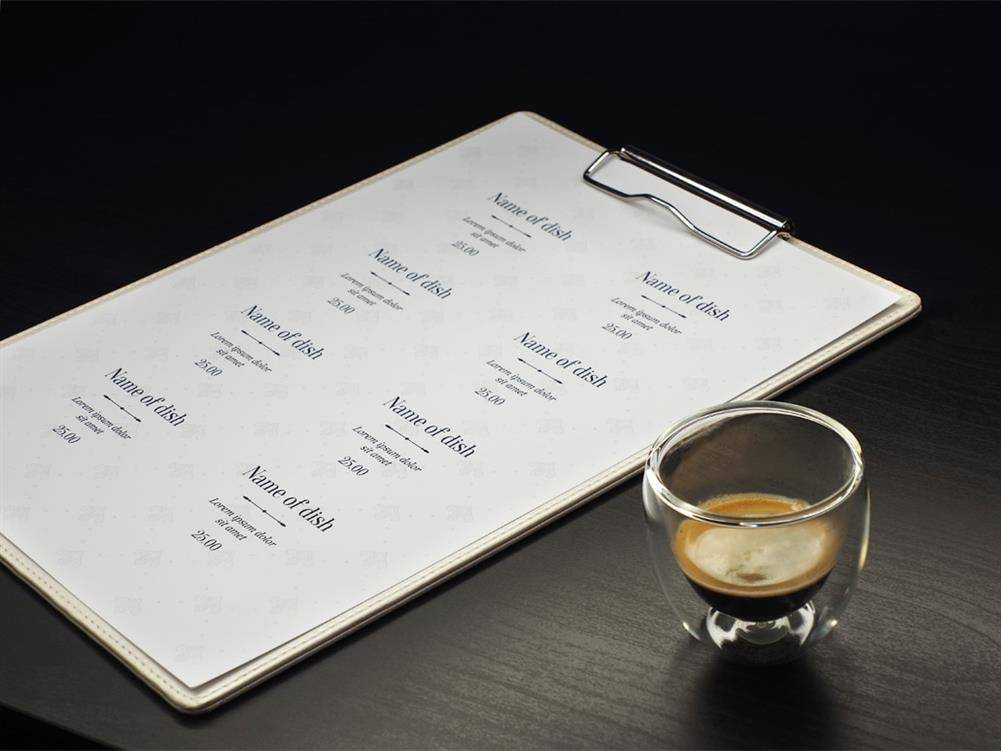 Name of dish
Lorem ipsum dolor
sit amet
25.00
Name of dish
Lorem ipsum dolor
sit amet
25.00
Name of dish
Lorem ipsum dolor
sit amet
25.00
Name of dish
Lorem ipsum dolor
sit amet
25.00
Name of dish
Lorem ipsum dolor
sit amet
25.00
Name of dish
Lorem ipsum dolor
sit amet
25.00
Name of dish
Lorem ipsum dolor
sit amet
25.00
Name of dish
Lorem ipsum dolor
sit amet
25.00